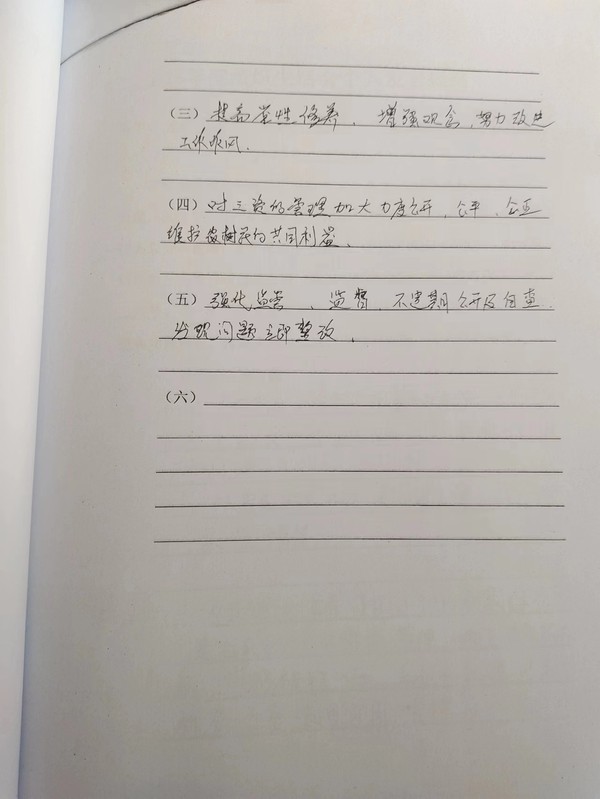 （三）提高党性修养，增强观念，努力改进
工作作风.
（四）对三资的管理加大力度公开、公平、公正
维护村民的共同利益、
（五）强化监管、监督，不定期公开及自查.
发现问题立即整改.
（六）